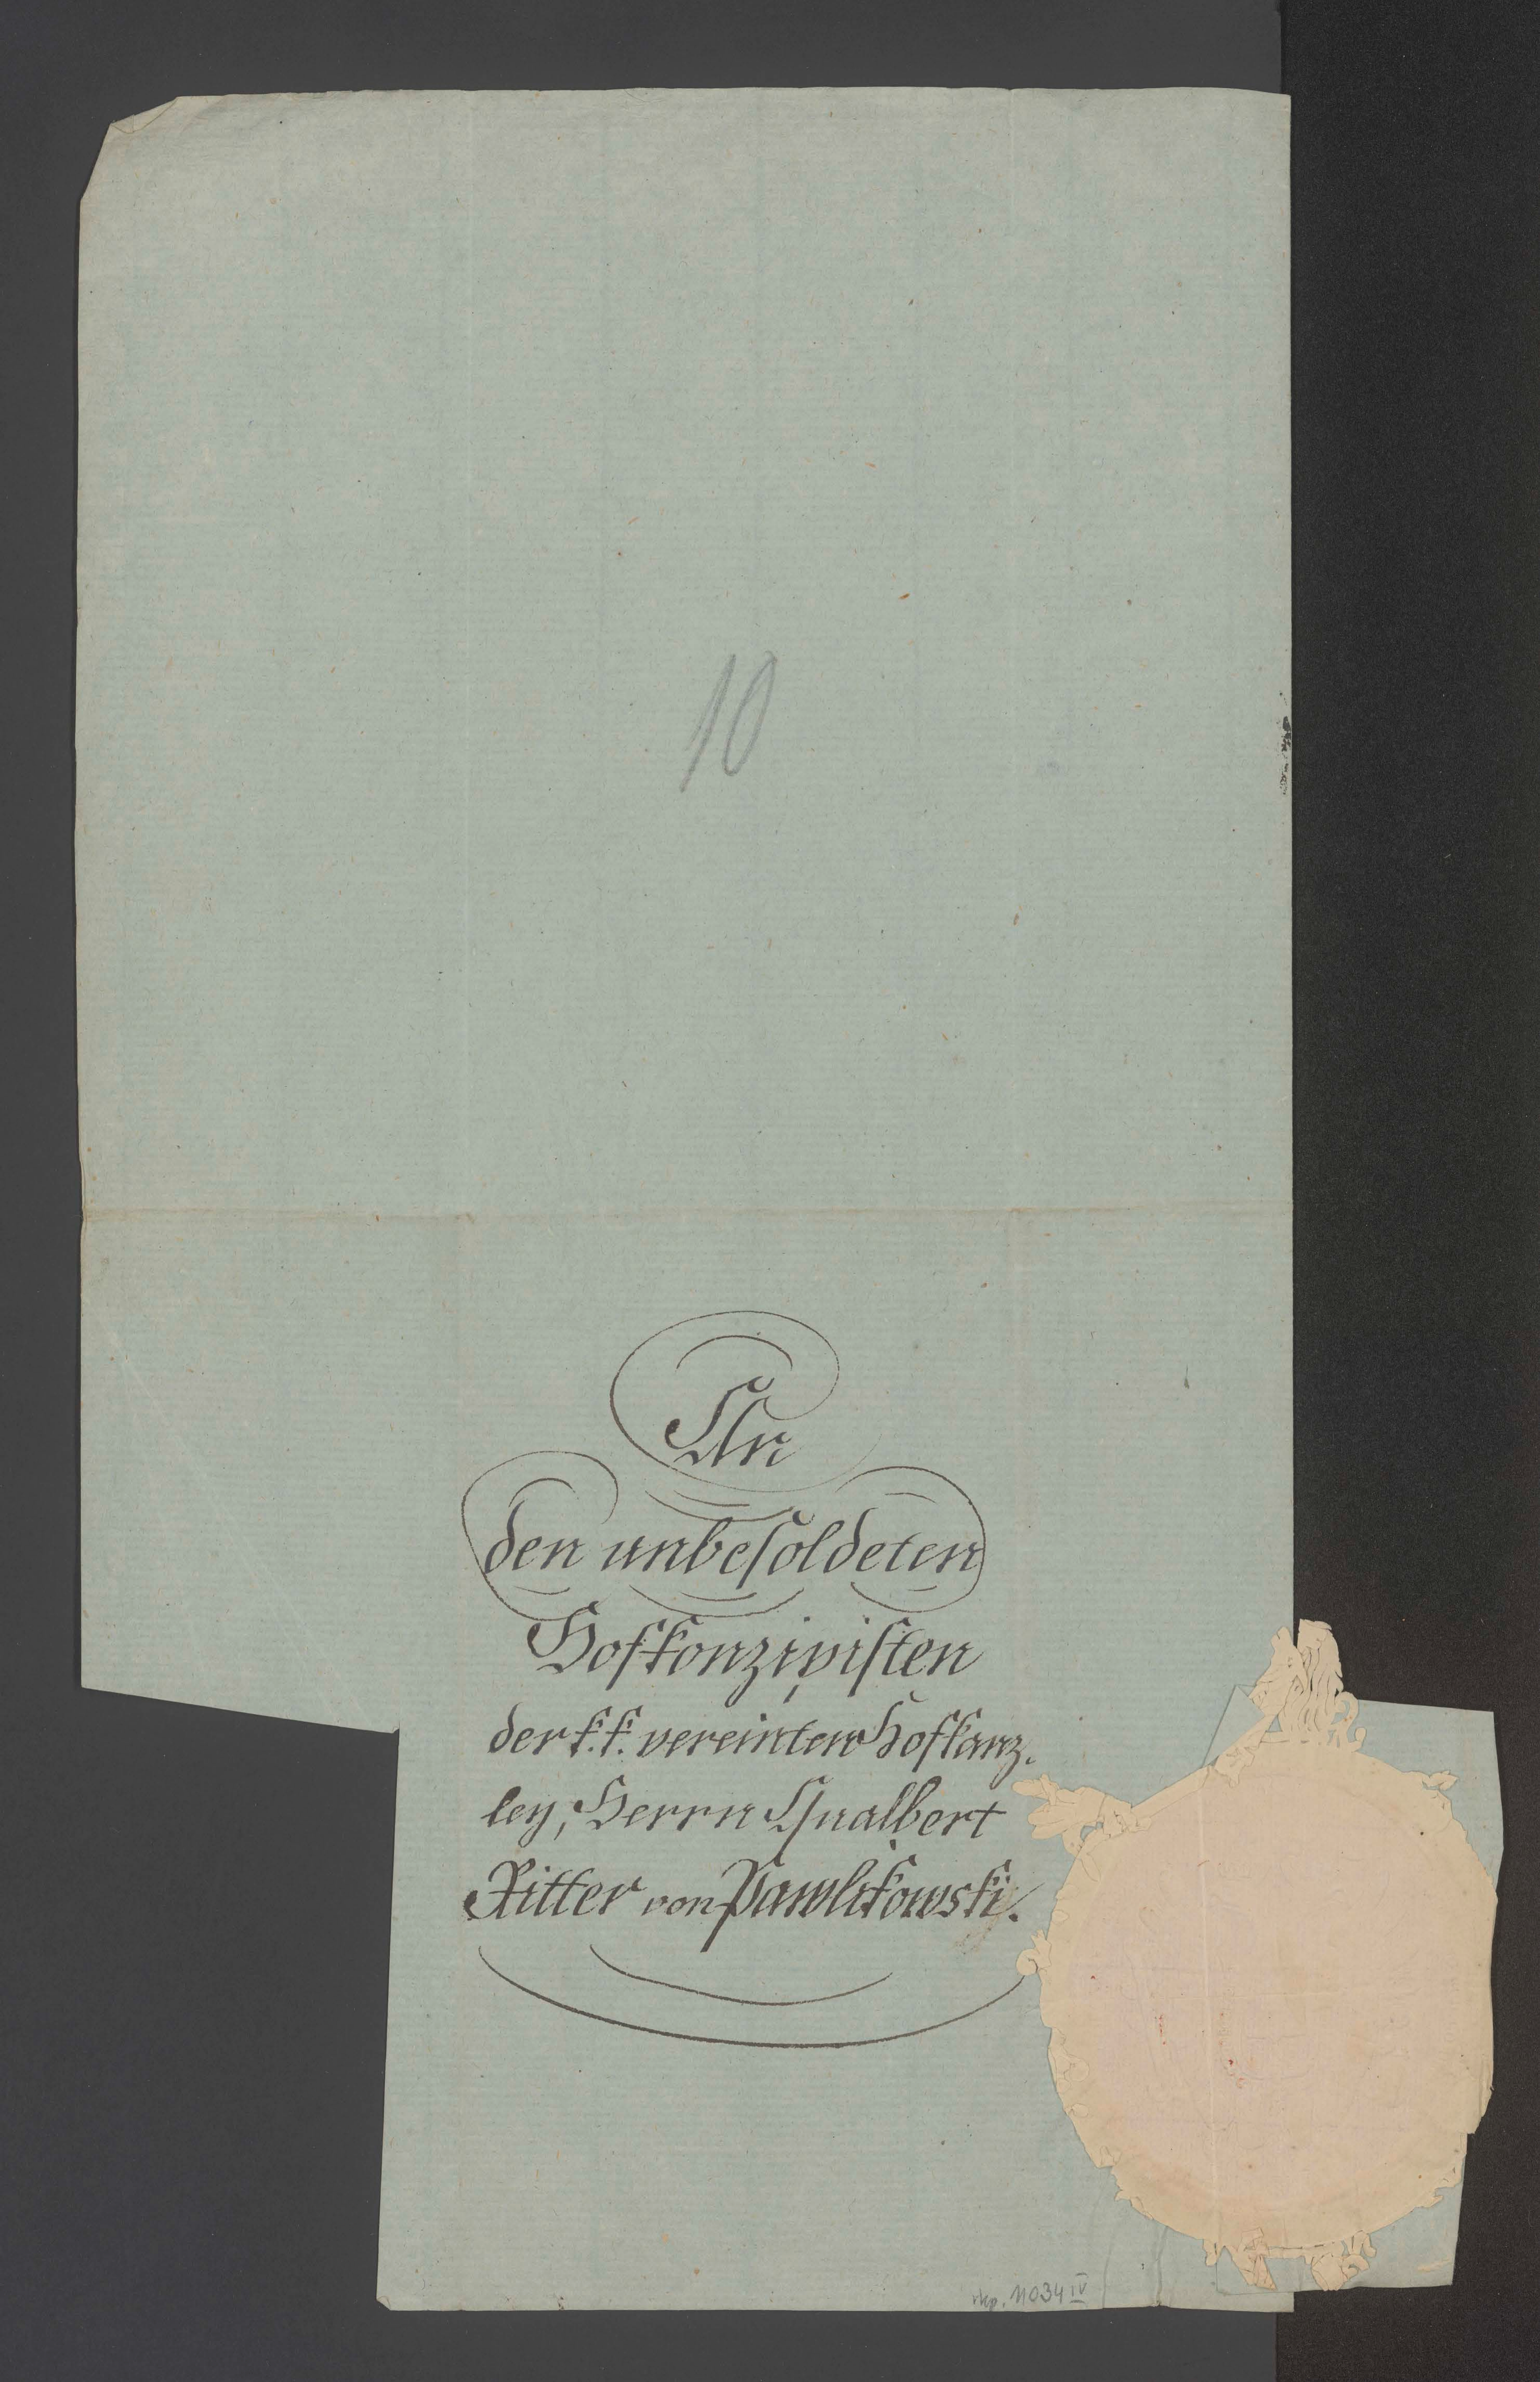 10
An
den unbesoldeten
Hofkonzipisten
der k: k: vereinten Hofkanz-
ley, Herrn Gualbert
Ritter von Pawlikowski.
rkp. 11034 IV